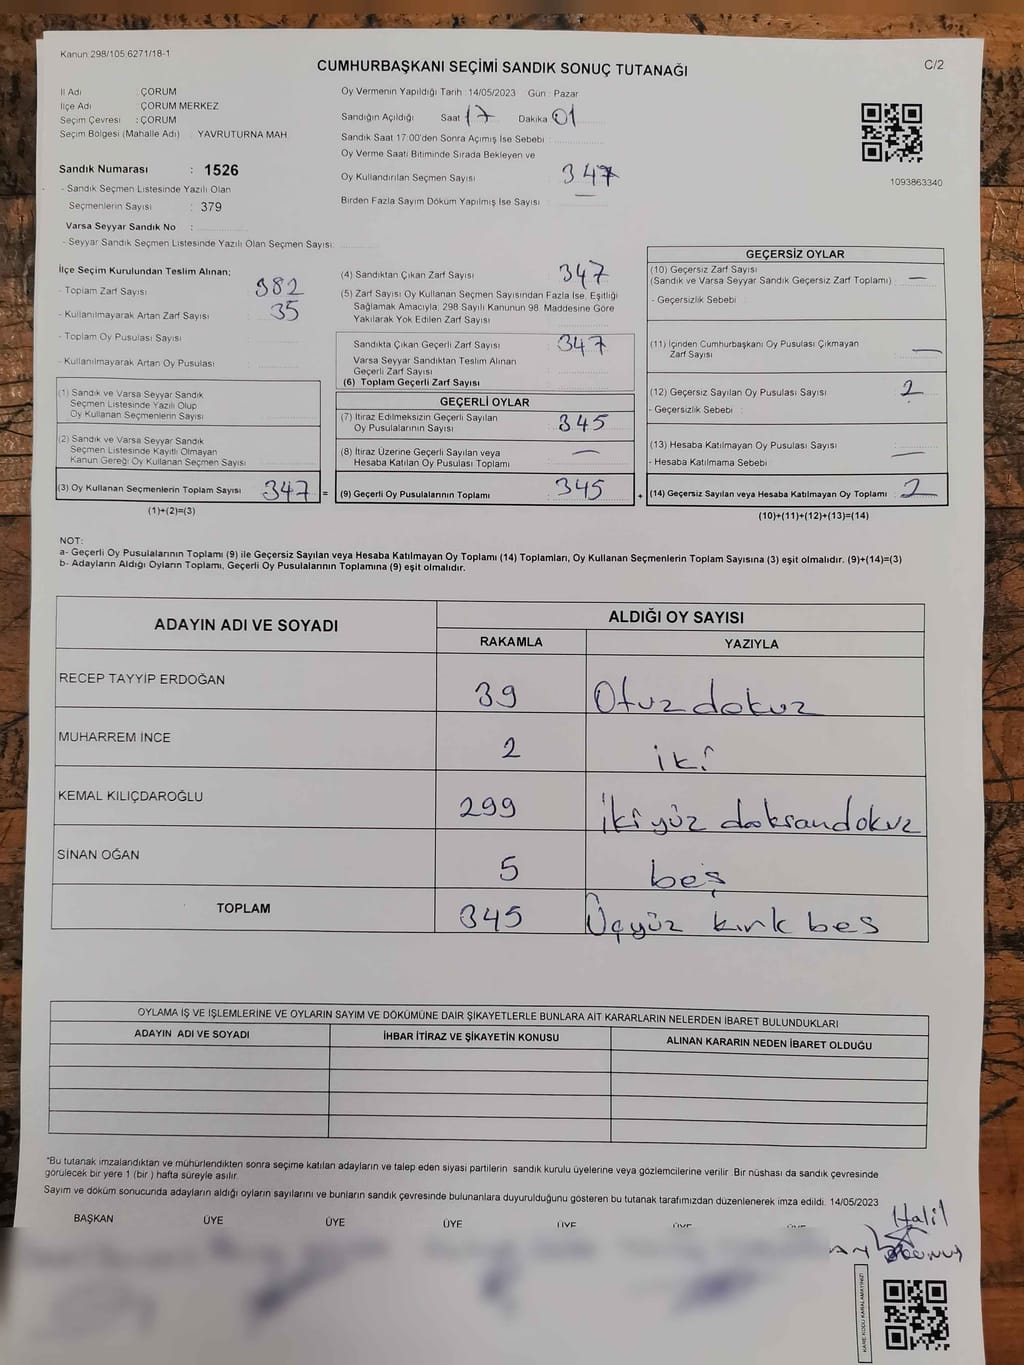 Kanun:298/105;6271/18-1
CUMHURBAŞKANI SEÇİMİ SANDIK SONUÇ TUTANAĞI
C/2
İl Adı : ÇORUM
İlçe Adı : ÇORUM MERKEZ
Seçim Çevresi : ÇORUM
Seçim Bölgesi (Mahalle Adı) : YAVRUTURNA MAH.
Sandık Numarası : 1526
- Sandık Seçmen Listesinde Yazılı Olan
Seçmenlerin Sayısı : 379
Varsa Seyyar Sandık No :
- Seyyar Sandık Seçmen Listesinde Yazılı Olan Seçmen Sayısı:
Oy Vermenin Yapıldığı Tarih : 14/05/2023 Gün : Pazar
Sandığın Açıldığı Saat 17 Dakika 01
Sandık Saat 17:00'den Sonra Açımış İse Sebebi :
Oy Verme Saati Bitiminde Sırada Bekleyen ve
Oy Kullandırılan Seçmen Sayısı : 347
Birden Fazla Sayım Döküm Yapılmış İse Sayısı :
1093863340
İlçe Seçim Kurulundan Teslim Alınan;
- Toplam Zarf Sayısı : 382
- Kullanılmayarak Artan Zarf Sayısı : 35
- Toplam Oy Pusulası Sayısı :
- Kullanılmayarak Artan Oy Pusulası :
(1) Sandık ve Varsa Seyyar Sandık
Seçmen Listesinde Yazılı Olup
Oy Kullanan Seçmenlerin Sayısı :
(2) Sandık ve Varsa Seyyar Sandık
Seçmen Listesinde Kayıtlı Olmayan
Kanun Gereği Oy Kullanan Seçmen Sayısı :
(3) Oy Kullanan Seçmenlerin Toplam Sayısı : 347 =
(1)+(2)=(3)
(4) Sandıktan Çıkan Zarf Sayısı : 347
(5) Zarf Sayısı Oy Kullanan Seçmen Sayısından Fazla İse, Eşitliği
Sağlamak Amacıyla; 298 Sayılı Kanunun 98. Maddesine Göre
Yakılarak Yok Edilen Zarf Sayısı :
Sandıkta Çıkan Geçerli Zarf Sayısı : 347
Varsa Seyyar Sandıktan Teslim Alınan
Geçerli Zarf Sayısı :
(6) Toplam Geçerli Zarf Sayısı
GEÇERLİ OYLAR
(7) İtiraz Edilmeksizin Geçerli Sayılan
Oy Pusulalarının Sayısı : 345
(8) İtiraz Üzerine Geçerli Sayılan veya
Hesaba Katılan Oy Pusulası Toplamı : —
(9) Geçerli Oy Pusulalarının Toplamı : 345 +
GEÇERSİZ OYLAR
(10) Geçersiz Zarf Sayısı
(Sandık ve Varsa Seyyar Sandık Geçersiz Zarf Toplamı) : —
- Geçersizlik Sebebi :
(11) İçinden Cumhurbaşkanı Oy Pusulası Çıkmayan
Zarf Sayısı : —
(12) Geçersiz Sayılan Oy Pusulası Sayısı : 2
- Geçersizlik Sebebi :
(13) Hesaba Katılmayan Oy Pusulası Sayısı : —
- Hesaba Katılmama Sebebi :
(14) Geçersiz Sayılan veya Hesaba Katılmayan Oy Toplamı : 2
(10)+(11)+(12)+(13)=(14)
NOT:
a- Geçerli Oy Pusulalarının Toplamı (9) ile Geçersiz Sayılan veya Hesaba Katılmayan Oy Toplamı (14) Toplamları, Oy Kullanan Seçmenlerin Toplam Sayısına (3) eşit olmalıdır. (9)+(14)=(3)
b- Adayların Aldığı Oyların Toplamı, Geçerli Oy Pusulalarının Toplamına (9) eşit olmalıdır.
ADAYIN ADI VE SOYADI ALDIĞI OY SAYISI
RAKAMLA YAZIYLA
RECEP TAYYİP ERDOĞAN 39 Otuz dokuz
MUHARREM İNCE 2 iki
KEMAL KILIÇDAROĞLU 299 İki yüz doksandokuz
SİNAN OĞAN 5 beş
TOPLAM 345 Üçyüz kırk bes
OYLAMA İŞ VE İŞLEMLERİNE VE OYLARIN SAYIM VE DÖKÜMÜNE DAİR ŞİKAYETLERLE BUNLARA AİT KARARLARIN NELERDEN İBARET BULUNDUKLARI
ADAYIN ADI VE SOYADI İHBAR İTİRAZ VE ŞİKAYETİN KONUSU ALINAN KARARIN NEDEN İBARET OLDUĞU
*Bu tutanak imzalandıktan ve mühürlendikten sonra seçime katılan adayların ve talep eden siyasi partilerin sandık kurulu üyelerine veya gözlemcilerine verilir. Bir nüshası da sandık çevresinde
görülecek bir yere 1 (bir) hafta süreyle asılır.
Sayım ve döküm sonucunda adayların aldığı oyların sayılarını ve bunların sandık çevresinde bulunanlara duyurulduğunu gösteren bu tutanak tarafımızdan düzenlenerek imza edildi. 14/05/2023
BAŞKAN ÜYE ÜYE ÜYE ÜYE ÜYE ÜYE
Halil
KARE KODU KARALAMAYINIZ!